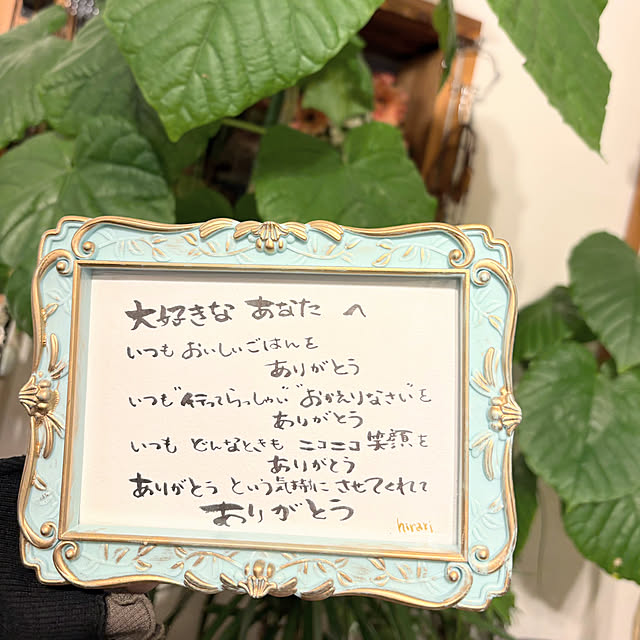 大好きな あなた へ
いつも おいしいごはんを
ありがとう
いつも"行ってらっしゃい""おかえりなさい"を
ありがとう
いつも どんなときも ニコニコ 笑顔を
ありがとう
ありがとう という気持ちに させてくれて
ありがとう
hirari